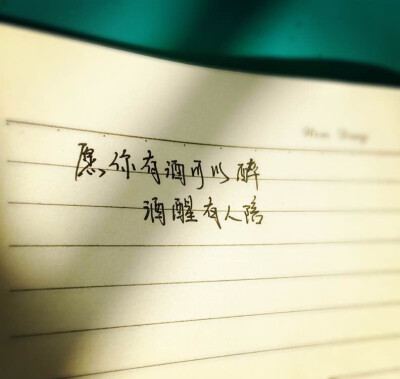 愿你有酒可以醉
酒醒有人陪